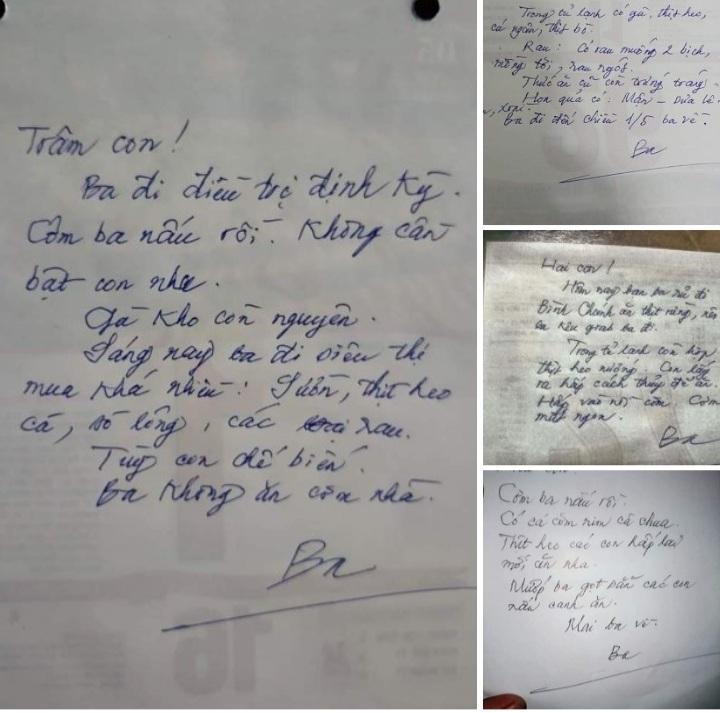 Trâm con!
Ba đi điều trị định kỳ.
Cơm ba nấu rồi. Không cần
bật con nha.
Gà kho còn nguyên.
Sáng nay ba đi siêu thị
mua khá nhiều: Sườn, thịt heo
cá, sò lông, các loại rau.
Tùy con chế biến.
Ba không ăn cơm nhà.
Ba
Trong tủ lạnh có gà, thịt heo,
cá ngừ, thịt bò.
Rau: Có rau muống 2 bịch,
mồng tơi, rau ngót.
Thức ăn cũ còn trứng tráng.
Hoa quả có: Mận - sữa lê
xoài.
Ba đi đến chiều 1/5 ba về.
Ba
Hai con!
Hôm nay bạn ba rủ đi
Bình Chanh ăn thịt rừng, nên
ba đi.
Trong tủ lạnh còn hộp
thịt heo nướng. Con lấy
ra hấp cách thủy để ăn.
Hấp vào nồi cơm. Cơm
mới ngon.
Ba
Cơm ba nấu rồi.
Có cá cơm rim cà chua.
Thịt heo các con hấp lại
mới ăn nha.
Mướp ba gọt sẵn các con
nấu canh ăn.
Mai ba về.
Ba